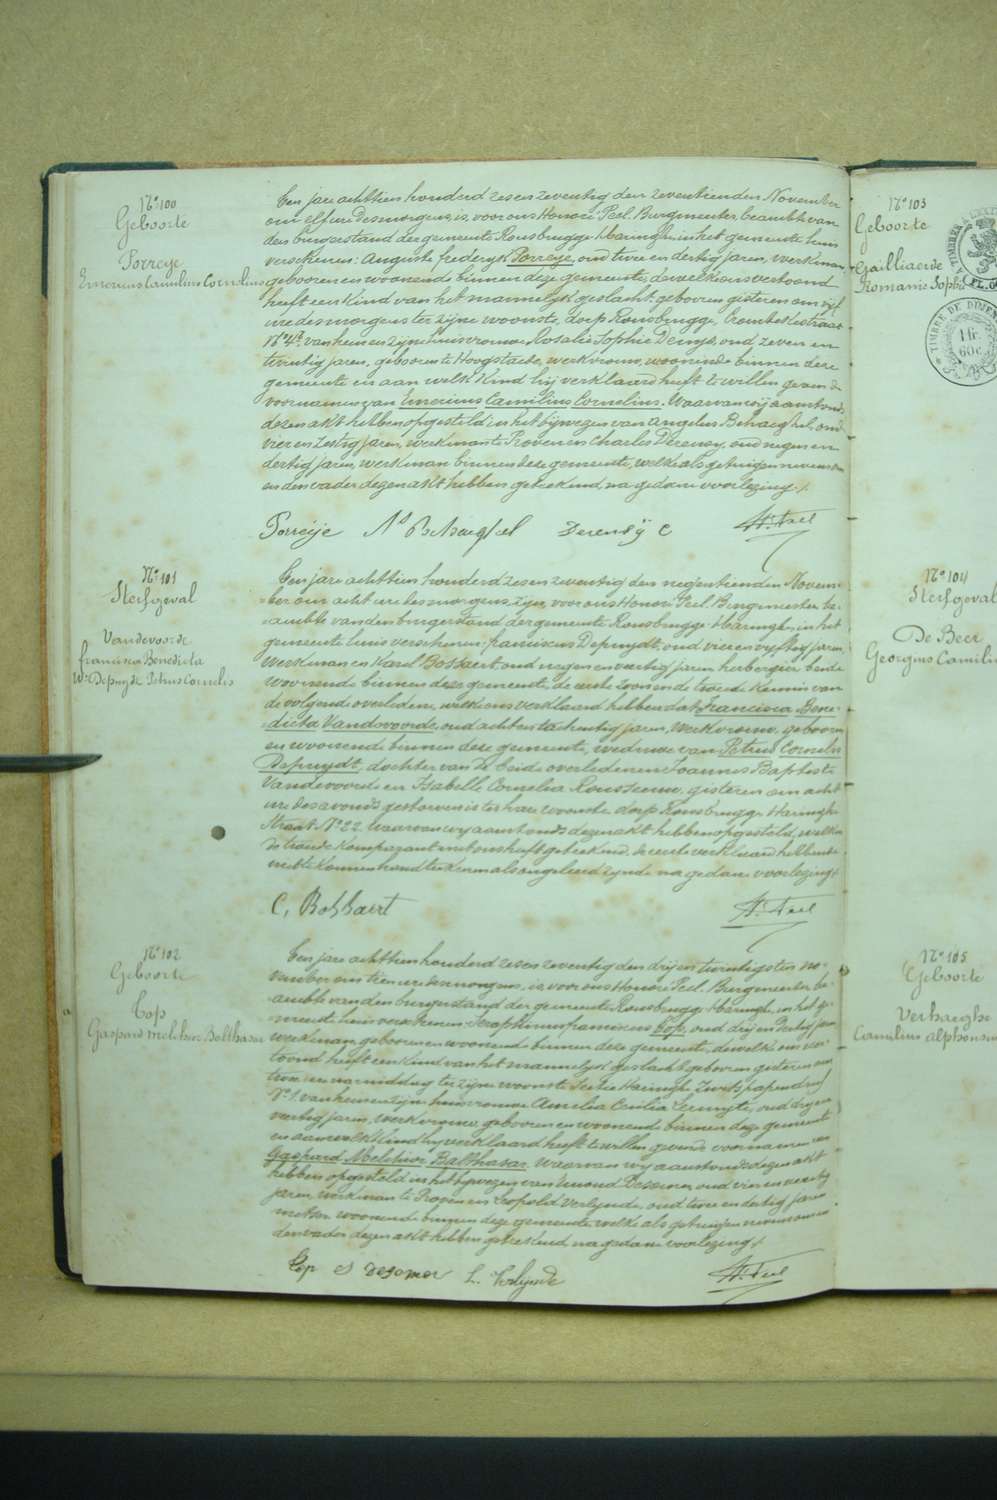 N° 100
Geboorte
Porreye
Emerius Camilius Cornelius
Een jare achttien honderd zes en zeventig den zeventienden November
om elf ure des morgens, is, voor ons Honoré Peel, Burgmeester beambte van
den burgerstand der gemeente Rousbrugge-Haringhe, in het gemeente huis
verschenen: Auguste frederyk Porreye, oud twee en dertig jaren, werkman,
geboren en woonende binnen deze gemeente, dewelke ons vertoond
heeft een kind van het mannelyk geslacht, geboren gisteren om vyf
ure des morgens ter zijne woonste, dorp Rousbrugge, Crombekestraat
N° 4, van hem en zijne huisvrouw Rosalie Sophie Denys, oud zeven en
twintig jaren, geboren te Hoogstaede, werkvrouw, woonende binnen deze
gemeente en aan welk kind hij verklaard heeft te willen geven de
voornamen van Emerius Camilius Cornelius. Waarvan wij aanstonds
dezen akt hebben opgesteld in het bijwezen van Angelus Behaeghel, oud
vier en zestig jaren, werkman te Proven en Charles Derensy, oud negen en
dertig jaren, werkman binnen deze gemeente, welke als getuigen nevens ons
en den vader dezen akt hebben geteekend, na gedane voorlezing ./.
Porreÿe A° Behaeghel Derensÿ C Hré Peel
N° 101
Sterfgeval
Vandevoorde
francisca Benedicta
We Depuydt Petrus Cornelis
Een jare achttien honderd zes en zeventig den negentienden Novem-
ber om acht ure des morgens zijn, voor ons Honoré Peel, Burgmeester be-
ambte van den burgerstand der gemeente Rousbrugge-Haringhe, in het
gemeente huis verschenen: franciscus Depuydt, oud vier en vyftig jaren
werkman en Karel Bossaert, oud negen en veertig jaren, herbergier, beide
woonende binnen deze gemeente, de eerste zoon en de tweede kennis van
de volgende overledene, welke ons verklaard hebben dat Francisca Bene-
dicta Vandevoorde, oud acht en tachentig jaren, werkvrouw, geboren
en woonende binnen deze gemeente, weduwe van Petrus Cornelis
Depuydt, dochter van de beide overledenen Joannes Baptiste
Vandevoorde en Isabelle Cornelia Rousseeuw, gisteren om acht
ure des avonds gestorven is ter hare woonste dorp Rousbrugge Haringhe
Straat N° 22. Waarvan wy aanstonds dezen akt hebben opgesteld, welken
de tweede komparant met ons heeft geteekend, de eerste verklaard hebbende
niet te konnen handteekenen als ongeleerd zijnde na gedane voorlezing ./.
C. Bossaert Hré Peel
N° 102
Geboorte
Top
Gaspard Melchior Balthasar
Een jare achttien honderd zes en zeventig den drij en twintigsten no-
vember om tien ure des morgens, is, voor ons Honoré Peel, Burgmeester be-
ambte van den burgerstand der gemeente Rousbrugge-Haringhe, in het ge-
meente huis verschenen: Seraphinus franciscus Top, oud drij en dertig jaren
werkman, geboren en woonende binnen deze gemeente, dewelke ons ver-
toond heeft een kind van het mannelyk geslacht, geboren gisteren om
twee ure namiddag ter zijne woonste
N° 1, van hem en zijne huisvrouw Amelia Cecilia oud drij en
veertig jaren, werkvrouw, geboren en woonende binnen deze gemeente
en aan welk kind hy verklaard heeft te willen geven de voornamen van
Gaspard Melchior Balthasar. Waarvan wy aanstonds dezen akt
hebben opgesteld in het bijwezen van Desomer, oud vier en veertig
jaren, werkman te Proven en Leopold Verlynde, oud twee en dertig jaren
metser woonende binnen deze gemeente, welke als getuigen nevens ons en
den vader dezen akt hebben geteekend, na gedane voorlezing ./.
Top Desomer L. Verlynde Hré Peel
N° 103
Geboorte
Gailliaerde
Romanie Sophie
TIMBRE DE DIMEN
1 fr.
60 c.
N° 104
Sterfgeval
De Beer
Georgius Camili
N° 105
Geboorte
Verhaeghe
Camilius Alphonsus